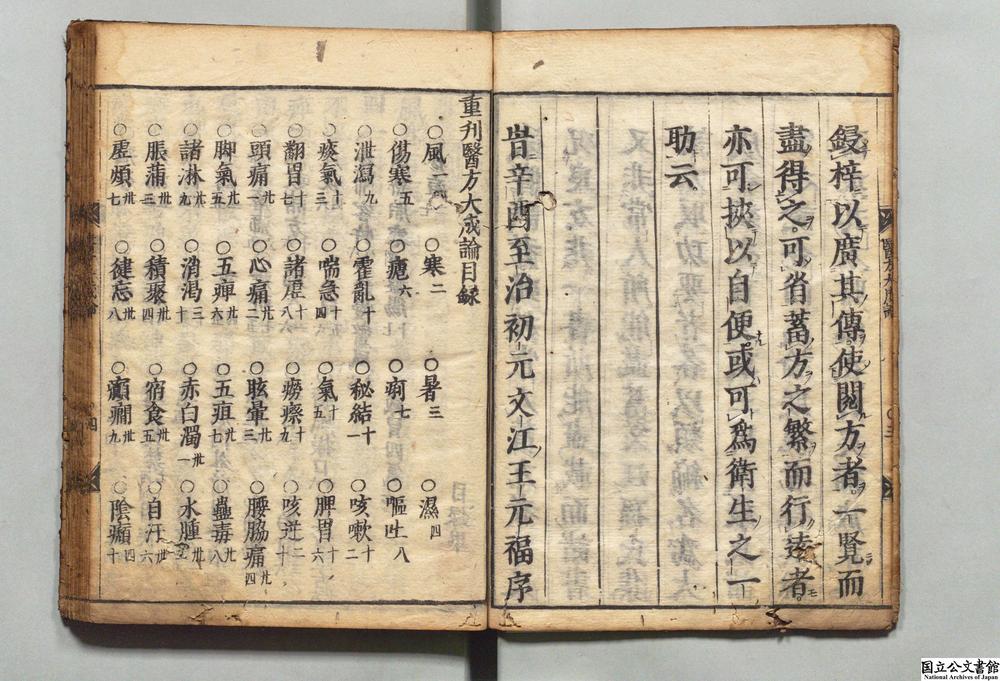 鋟梓以廣其傳使閱方者一覽而
盡得之可省蓄方之繁而行遠者
亦可挾以自便或可爲衛生之一
助云
旹辛酉至治初元文江王元福序
重刊醫方大成論目録
○風一 ○寒二 ○暑三 ○濕四
○傷寒五 ○瘧六 ○痢七 ○嘔吐八
○泄瀉九 ○霍亂十 ○秘結十一 ○咳嗽十二
○痰氣十三 ○喘急十四 ○氣十五 ○脾胃十六
○翻胃十七 ○諸虚十八 ○癆瘵十九 ○咳逆二十
○頭痛廿一 ○心痛廿二 ○眩暈廿三 ○腰脇痛廿四
○脚氣廿五 ○五痺廿六 ○五疸廿七 ○蠱毒廿八
○諸淋廿九 ○消渇三十 ○赤白濁卅一 ○水腫卅二
○脹滿卅三 ○積聚卅四 ○宿食卅五 ○自汗卅六
○虚煩卅七 ○健忘卅八 ○癲癇卅九 ○陰㿗四十
国立公文書館
National Archives of Japan